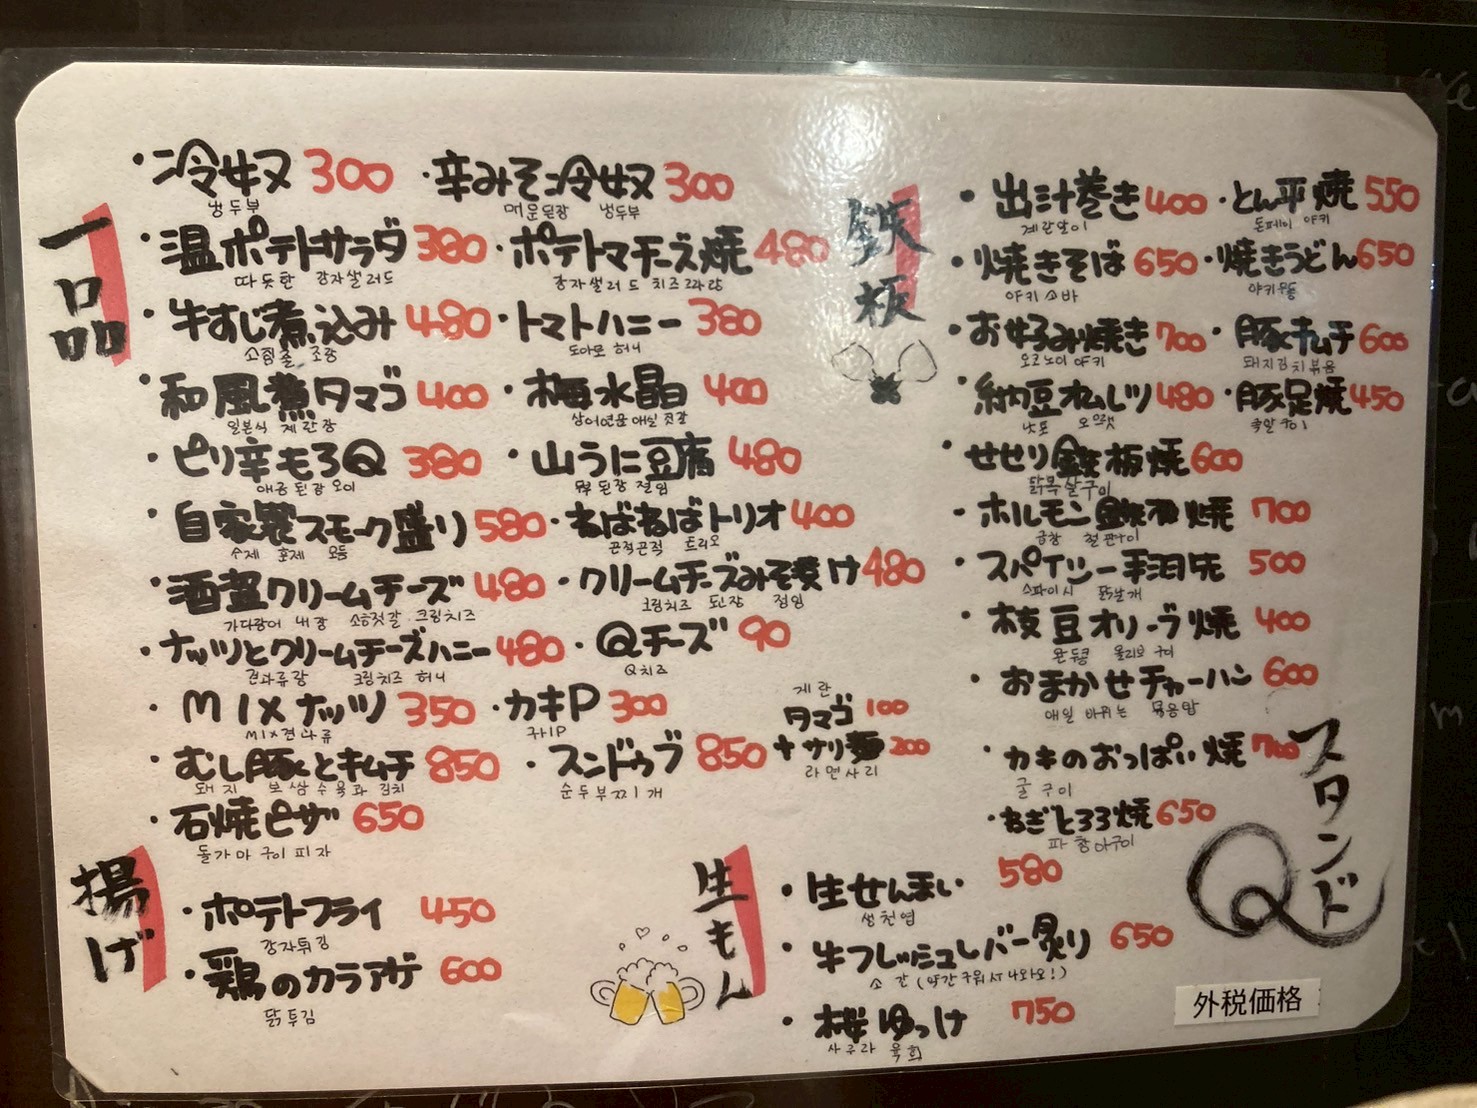 一品
・冷奴 300 ・辛みそ冷奴 300
냉두부 매운된장 냉두부
・温ポテトサラダ 380 ・ポテトマチーズ焼 480
따듯한 감자샐러드 감자샐러드 치즈
・牛すじ煮込み 480 ・トマトハニー 380
소힘줄 조림 도마토 허니
・和風煮タマゴ 400 ・梅水晶 400
일본식 계란장 상어연골 매실 젓갈
・ピリ辛もろQ 380 ・山うに豆腐 480
매콤된장 오이 두부 된장 절임
・自家製スモーク盛り 580 ・ねばねばトリオ 400
수제 훈제 모듬 끈적끈적 트리오
・酒盗クリームチーズ 480 ・クリームチーズみそ漬け 480
가다랑어 내장 소금젓갈 크림치즈 크림치즈 된장 절임
・ナッツとクリームチーズハニー 480 ・Qチーズ 90
견과류랑 크림치즈 허니 Q치즈
・MIXナッツ 350 ・カキP 300
MIX견과류 구나IP
・むし豚とキムチ 850 ・スンドゥブ 850
돼지 보쌈수육과 김치 순두부찌개
계란
タマゴ 100
+サリ麺 200
라면사리
・石焼ピザ 650
돌가마 구이 피자
揚げ
・ポテトフライ 450
감자튀김
・鶏のカラアゲ 600
닭튀김
鉄板
・出汁巻き 400 ・とん平焼 550
계란말이 돈페이 야키
・焼きそば 650 ・焼きうどん 650
야키소바 야키우동
・お好み焼き 700 ・豚キムチ 600
오코노미 야키 돼지김치볶음
・納豆オムレツ 480 ・豚足焼 450
낫또 오믈렛 족발구이
・せせり鉄板焼 600
닭목살구이
・ホルモン鉄板焼 700
곱창 철판구이
・スパイシー手羽先 500
스파이시 닭날개
・枝豆オリーブ焼 400
완두콩 올리브 구이
・おまかせチャーハン 600
매일 바뀌는 볶음밥
・カキのおっぱい焼 700
굴 구이
・ねぎとろろ焼 650
파 참마구이
生もん
・生せんまい 580
생천엽
・牛フレッシュレバー炙り 650
소 간 (약간구워서나와요!)
・桜ゆっけ 750
사쿠라 육회
スタンド
Q
外税価格